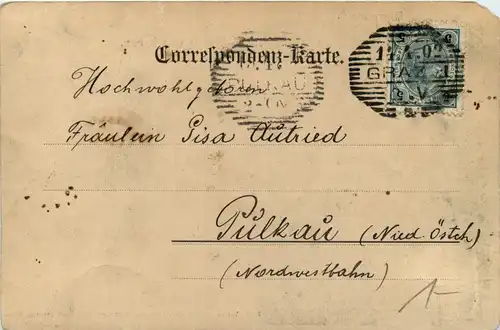 Correspondenz-Karte.
PULKAU
GRAZ 1
Hochwohlgeboren
Fräulein Pisa Autried
Pulkau (Nied. Östch)
(Nordwestbahn)